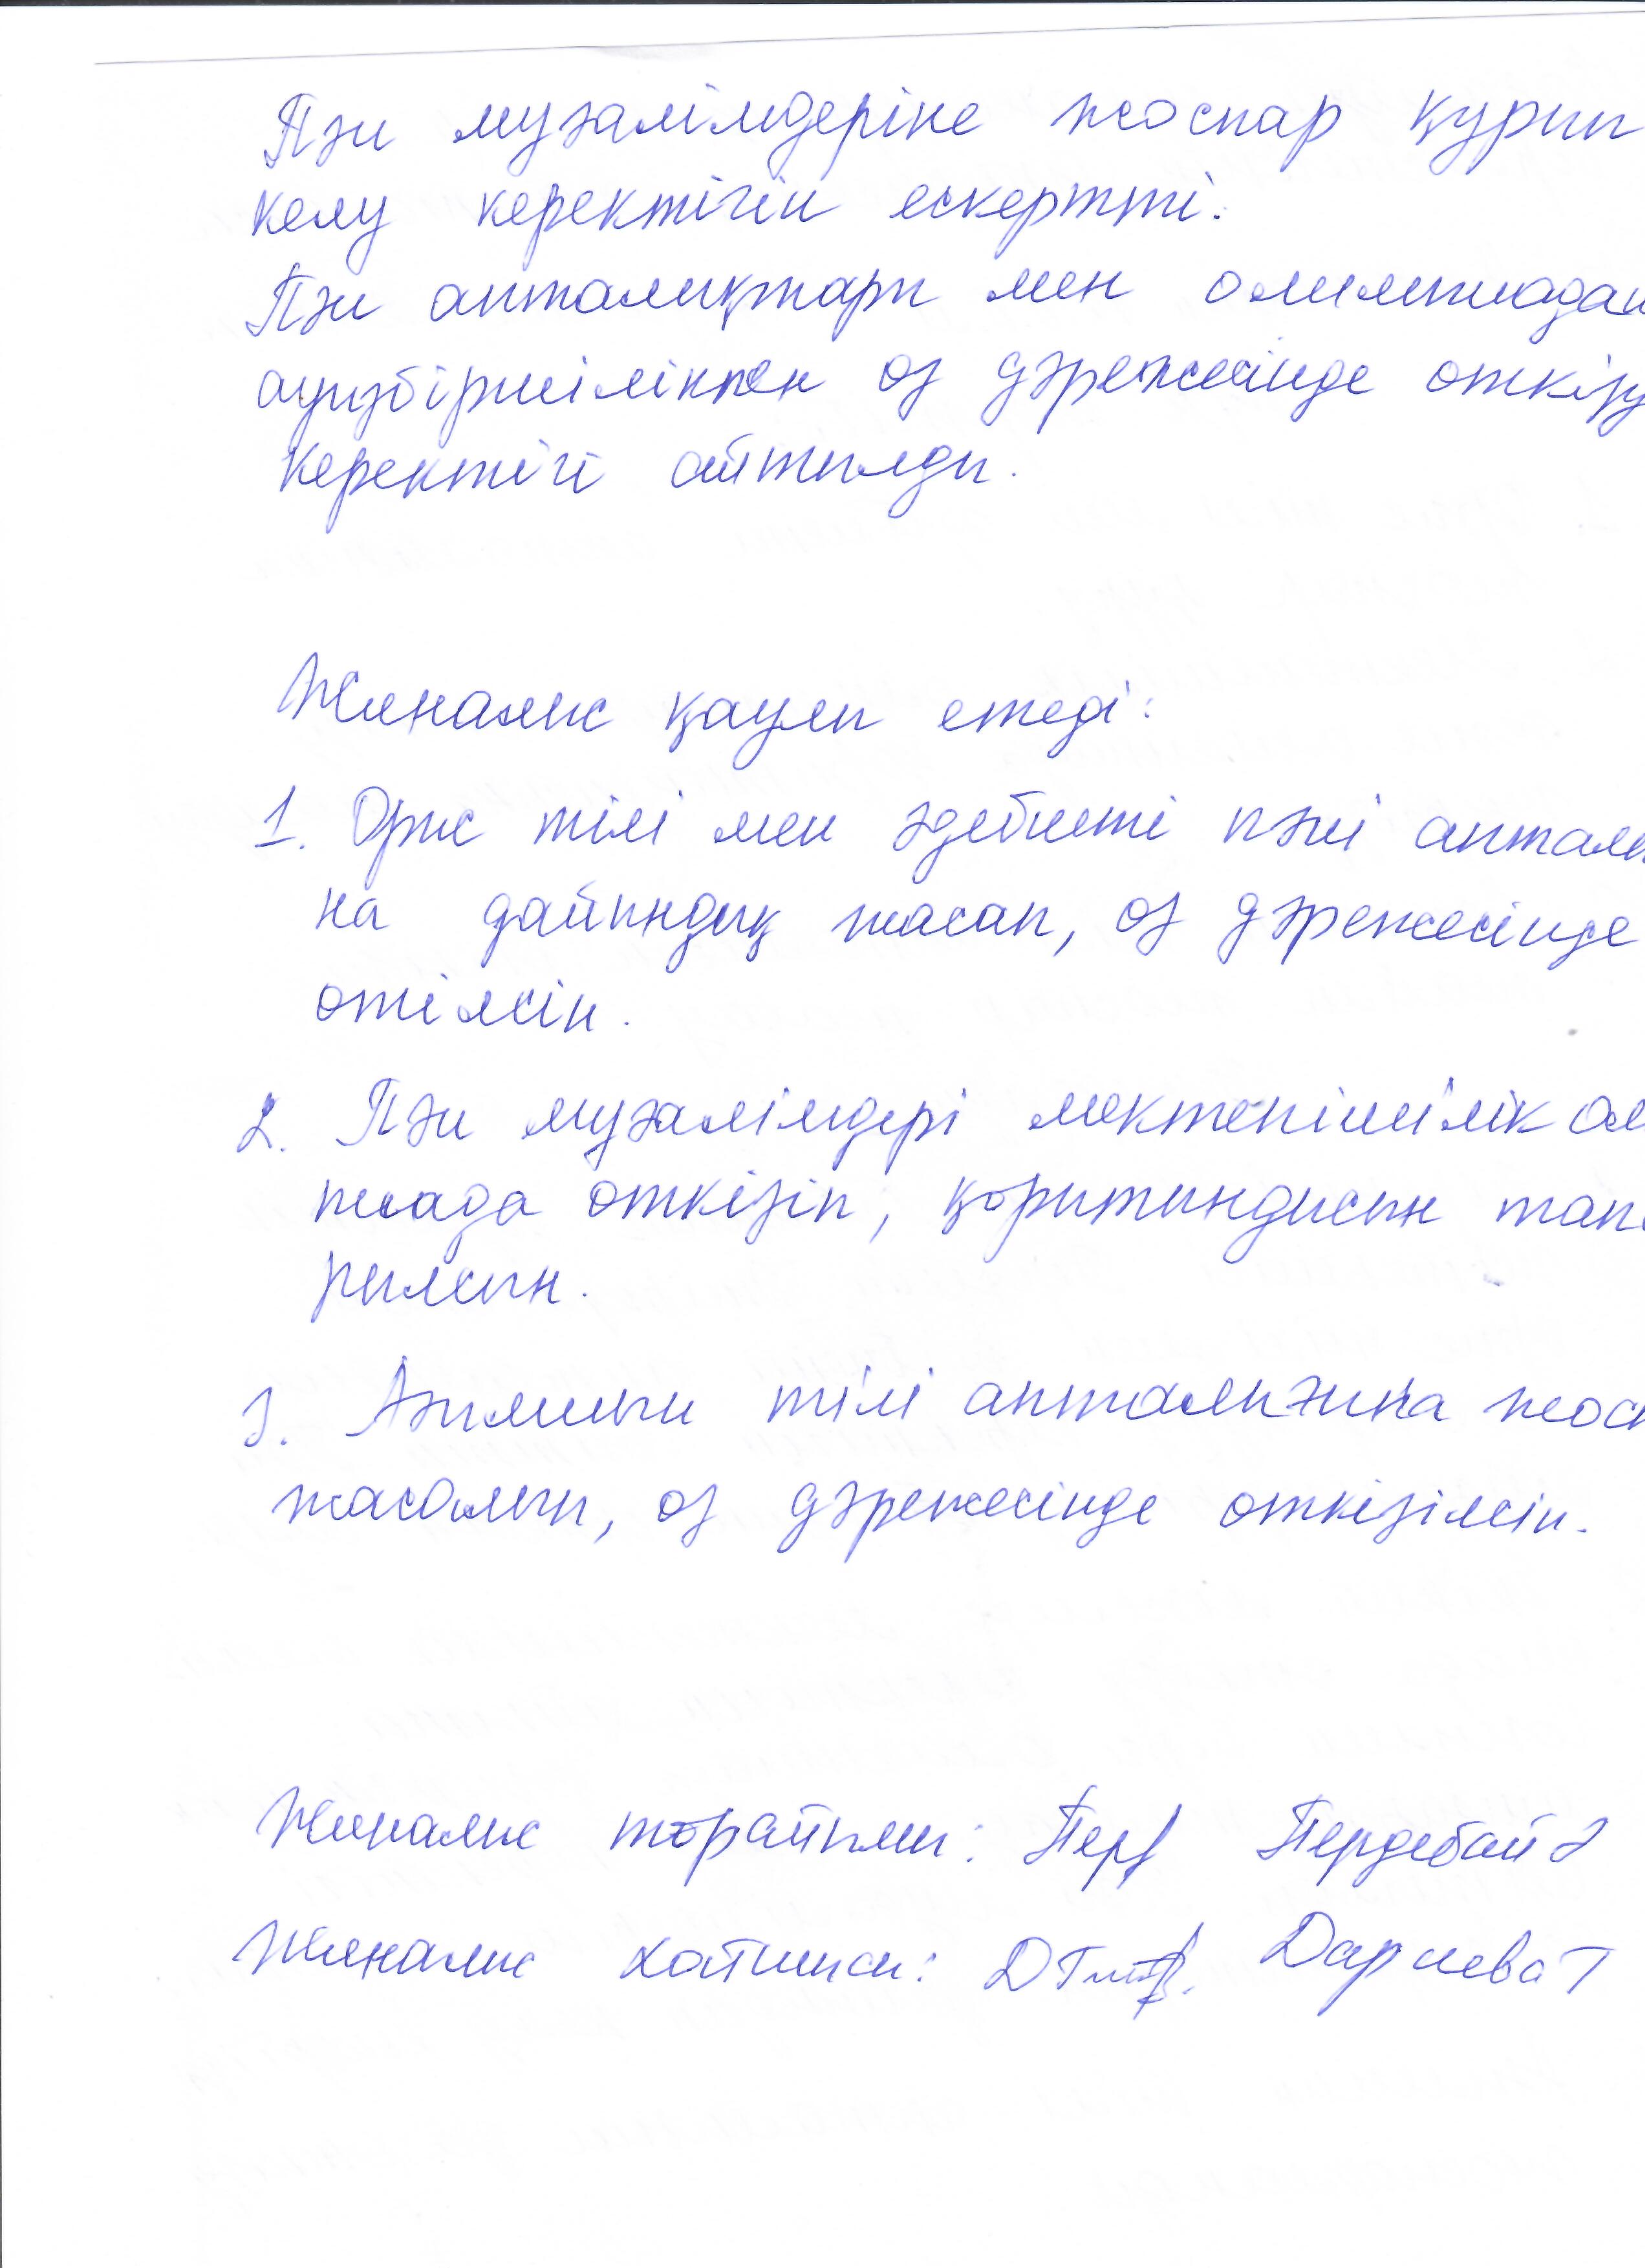 Пән мұғалімдеріне жоспар құрып
келу керектігін ескертті.
Пән апталықтары мен олимпиадан
ауызбіршілікпен өз дәрежесінде өткізу
керектігі айтылды.
Жиналыс қаулы етеді:
1. Орыс тілі мен әдебиеті пәні апталы
на дайындық жасап, өз дәрежесінде
өтілсін.
2. Пән мұғалімдері мектепішілік олим
пиада өткізіп, қорытындысын тапс
рылсын.
3. Ағылшын тілі апталығына жосп
жасалып, өз дәрежесінде өткізілсін.
Жиналыс төрайымы: Пердебай Ә
Жиналыс хатшысы: Дариева Т